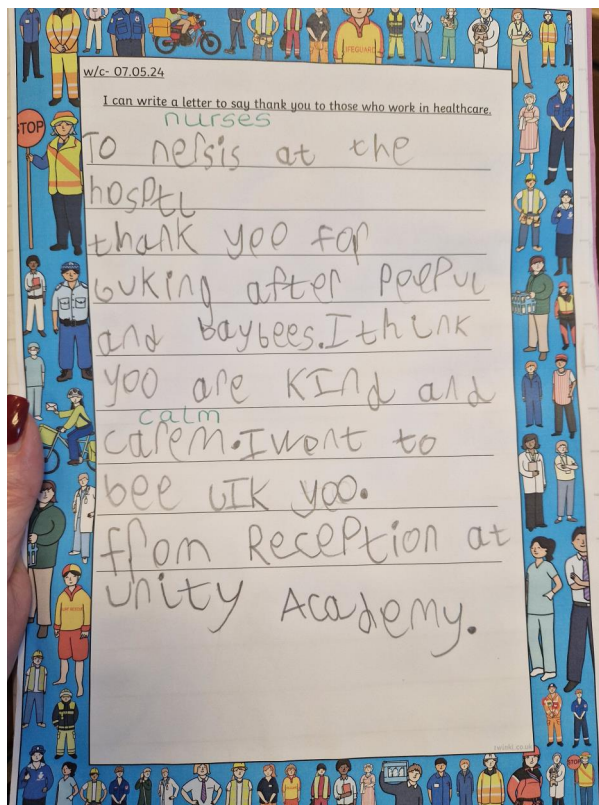 LIFEGUARD
STOP
w/c- 07.05.24
I can write a letter to say thank you to those who work in healthcare.
nurses
To nersis at the
hosptl
thank yoo for
luking after peepul
and baybees.I think
yoo are kind and
calm
carem.I went to
bee lik yoo.
from Reception at
unity Academy.
twinkl.co.uk
STOP